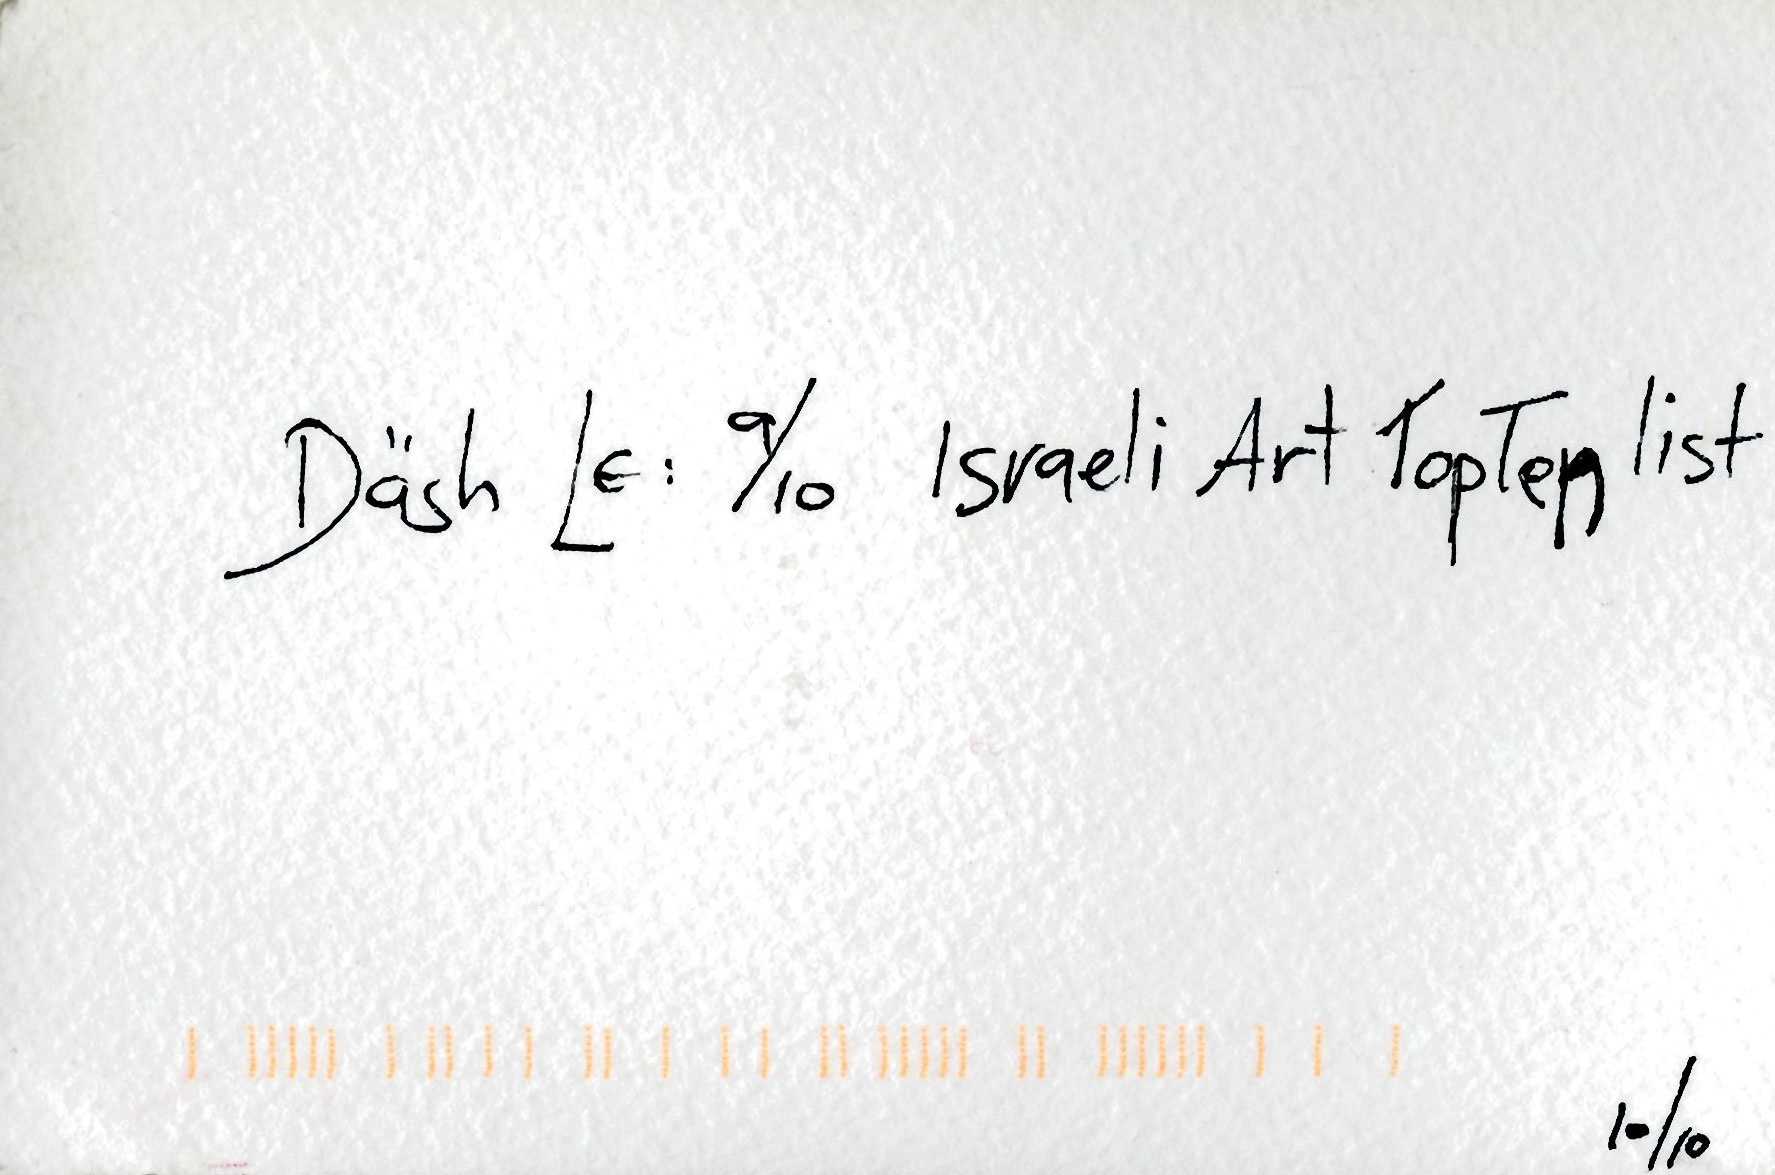 Däsh Le: 9/10 Israeli Art TopTen list
10/10